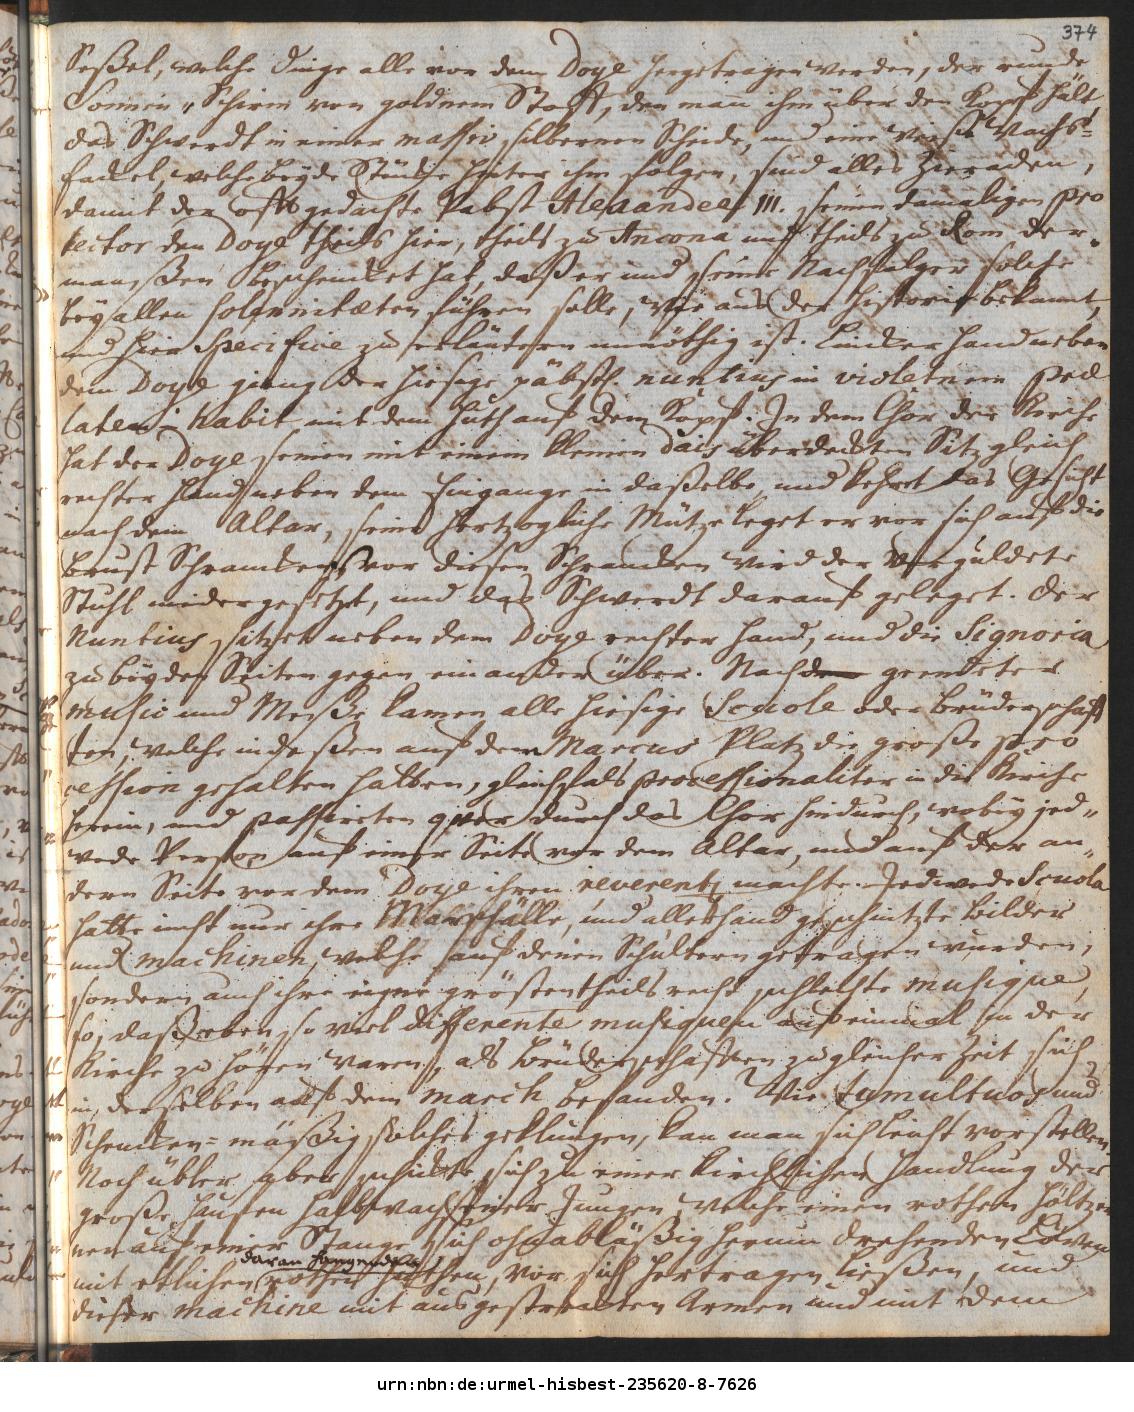 374
Seßel, welche dinge alle vor dem Doge hergetragen werden, der runde
Sonnen-Schirm von goldnem Stoff, den man ihm über den Kopf hält,
das Schwerdt in einer massiv silbernen Scheide, und eine weiße Wachs-
fackel, welche beyde Stücke hinter ihm folgen, sind alles Zieraden,
damit der offt gedachte Pabst Alexander III. seinen damaligen Pro
tector den Doge theils hier, theils zu Ancona und theils zu Rom der-
maaßen beschencket hat, daß er und seine Nachfolger solche
bey allen solemnitæten führen solle, wie aus der Historie bekannt,
und hier specifice zu erläutern unnöthig ist. Lincker Hand neben
dem Doge gieng der hiesige päbstl. nuntius in violetnem præ
laten-habit mit dem Huth auf dem Kopf. In dem Chor der Kirche
hat der Doge seinen mit einem kleinen dais überdeckten Sitz gleich
rechter Hand neben dem Eingange in daßelbe und kehret das Gesicht
nach dem Altar, seine Hertzogliche Mütze leget er vor sich auf die
Brust Schrancken, vor diesen Schrancken wird der vergüldete
Stuhl niedergesetzt, und das Schwerdt darauf geleget. Der
Nuntius sitzet neben dem Doge rechter Hand, und die Signoria
zu beyden Seiten gegen einander über. Nach geendeter
music und Meße kamen alle hiesige Scuole oder Brüderschaff
ten, welche indeßen auf dem Marcus Platz die große pro
cession gehalten hatten, gleichfals processionaliter in die Kirche
herein, und passireten quer durch das Chor hindurch, wobey jed-
wede Person auf einer Seite vor dem Altar, und auf der an-
dern Seite vor dem Doge ihren reverentz machte. Jedwede Scuola
hatte nicht nur ihre Marschälle, und allerhand geschnitzte Bilder
und machinen, welche auf denen Schultern getragen wurden,
sondern auch ihre eigne größtentheils recht schlechte musique,
so, daß eben so viel differente musiquen auf einmal in der
Kirche zu hören waren, als Brüderschafften zu gleicher Zeit sich
in derselben auf dem march befanden. Wie tumultuos und
Schencken-mäßig solches geklungen, kan man sich leicht vorstellen.
Noch übler aber schickte sich zu einer kirchlichen Handlung der
große Haufen halbwachsener Jungen, welche einen rothen höltzer
nen auf einer Stange sich ohnabläßig herum drehenden Löwen
daran hangenden
mit etlichen rothen Huthen, vor sich hertragen ließen, und
dieser machine mit ausgestreckten Armen und mit dem
urn:nbn:de:urmel-hisbest-235620-8-7626